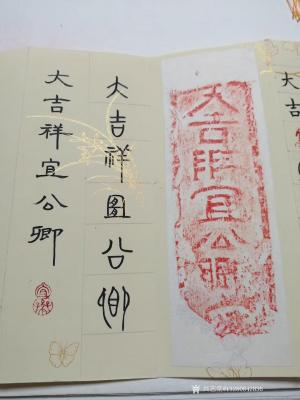 大吉
大吉祥宜公卿
大吉祥宜公卿
大吉祥宜公卿